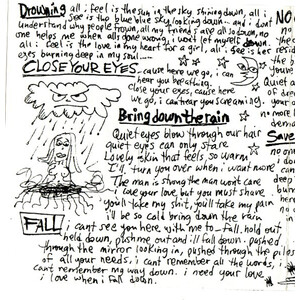 Drowning all i feel is the sun in the sky shining down, all i
see is the blue blue sky looking down - and i dont
understand why people frown, all my friends are all so down, no
one helps me when all done wrong, i wont let myself down
all i feel is the love in my heart for a girl, all i see is her
eyes burning deep in my soul.....
CLOSE YOUR EYES cause here we go, i can
hear you breathing.
close your eyes, cause here
we go, i can hear you screaming.
Bring down the rain
Quiet eyes blow through our hair
quiet eyes can only stare
Lovely skin that feels so warm
I'll turn you over when i want more
The man is strong the man wont care
I take your love but you must share
you'll take my shit, you'll take my pain
i'll be so cold bring down the rain
FALL i cant see you here with me to - fall. hold out
held down, push me out and i'll fall down. pushed
through the mirror looking in, pushed through the
of all your needs, i cant remember all the words, i
cant remember my way down. i need your love
i love when i fall down.
NO
Save